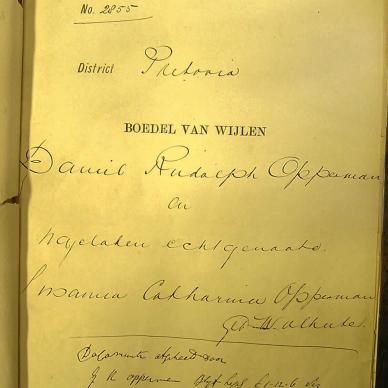 No. 2855
District Pretoria
BOEDEL VAN WIJLEN
Daniel Rudolph Opperman
en
nagelaten echtgenoote
Susanna Catharina Opperman
geb Wolhuter
door
opperman